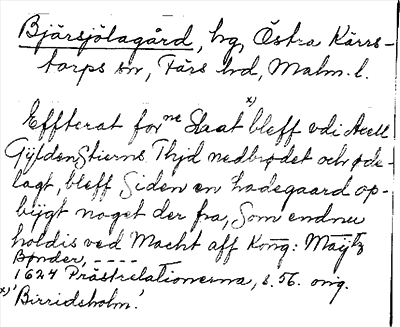 Bjärsjölagård, hg, Östra Kärrs-
torps sn, Färs hd, Malm. l.
x)
Effterat forne Slaat bleff vdi Axell
Gyldenstierns Thjd nedbrødet och øde-
lagt, bleff Siden en Ladegaard op-
bijgt noget der fra, Som endnu
holdis ved Macht aff Kong: Maytz
Bønder, ----
1624 Prästrelationerna, s. 56. orig.
x) 'Birridsholm'.